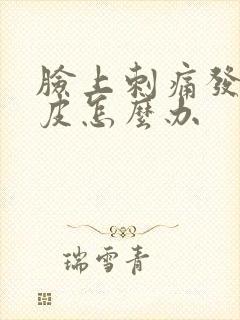 臉上刺痛發
皮怎麼办
瑞雪青